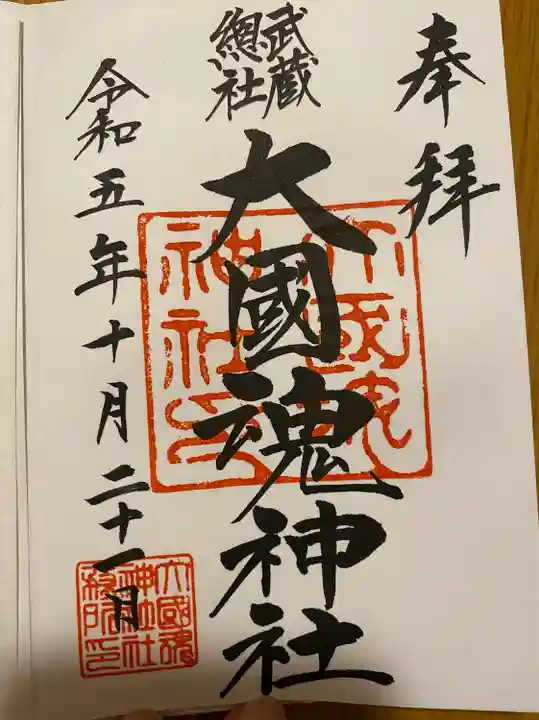 奉拝
武蔵
總社
大國魂神社
令和五年十月二十一日
大國魂
神社印
大國魂
神社